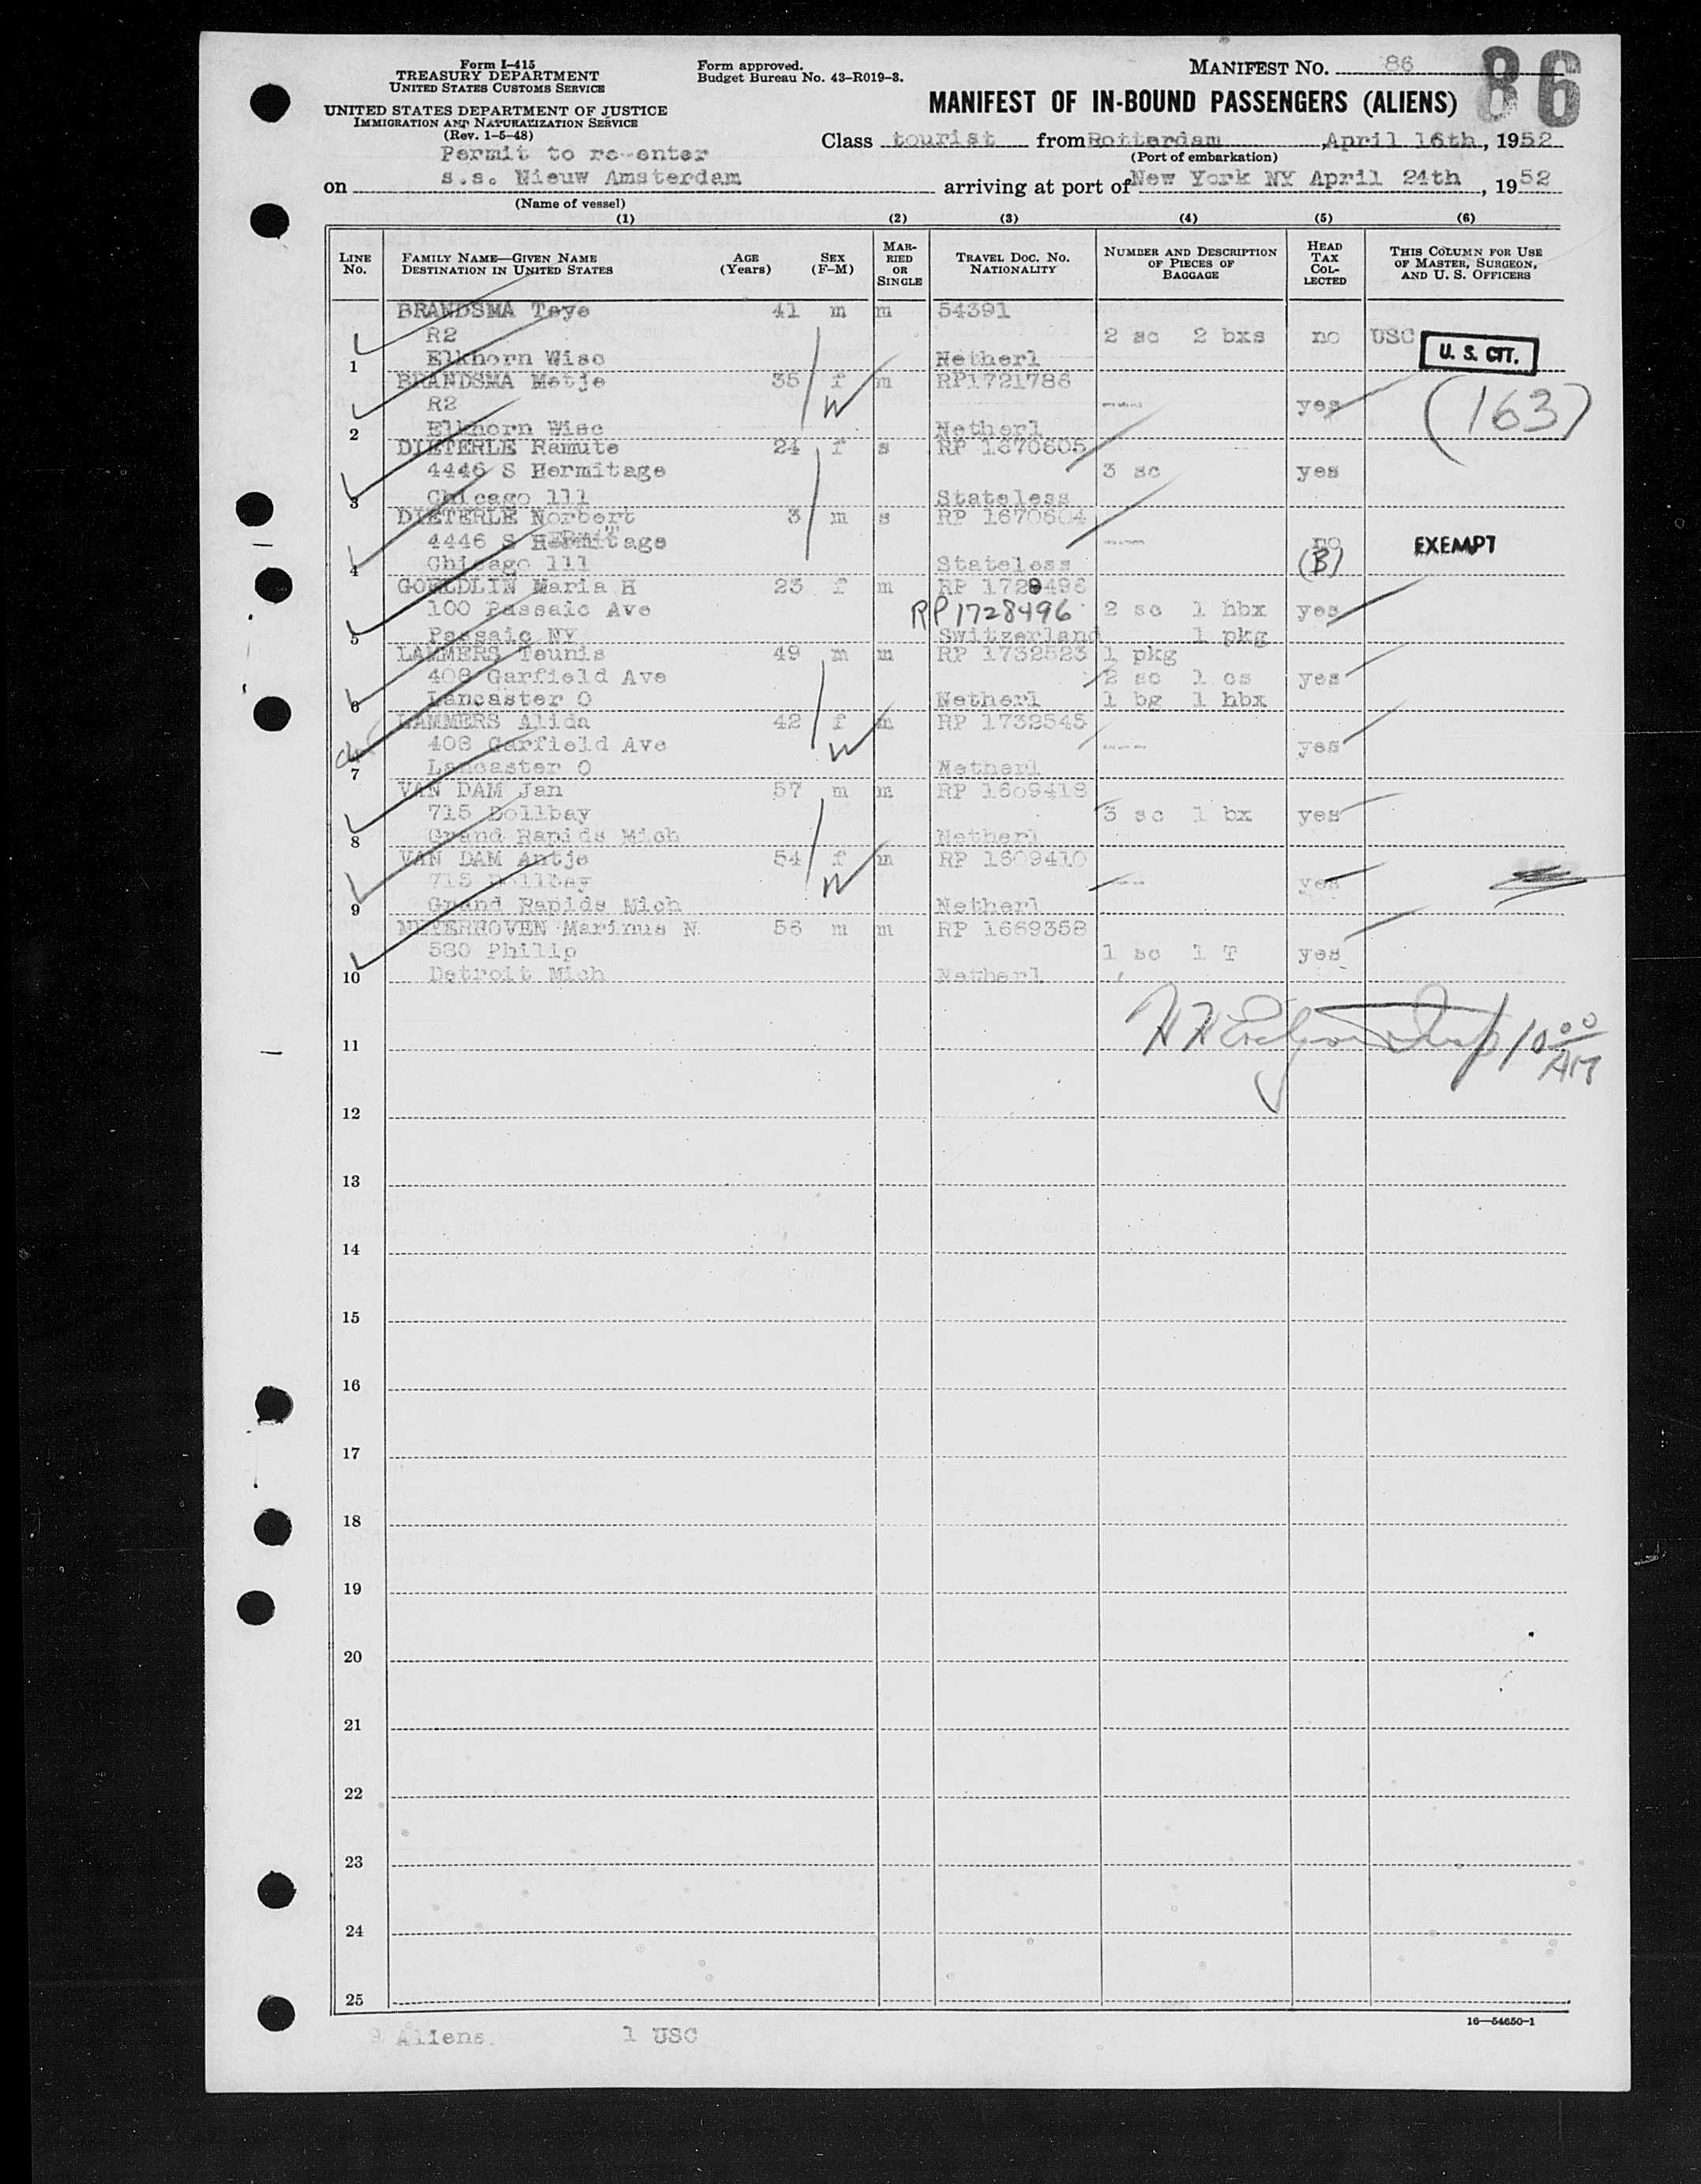 Form I-415
TREASURY DEPARTMENT
UNITED STATES CUSTOMS SERVICE
UNITED STATES DEPARTMENT OF JUSTICE
IMMIGRATION AND NATURALIZATION SERVICE
(Rev. 1-5-48)
Form approved.
Budget Bureau No. 43-R019-3.
MANIFEST NO. 86
86
MANIFEST OF IN-BOUND PASSENGERS (ALIENS)
Class tourist from Rotterdam, April 16th, 1952
(Port of embarkation)
Permit to re-enter
on s.s. Nieuw Amsterdam arriving at port of New York NY April 24th, 1952
(Name of vessel)
(1) (2) (3) (4) (5) (6)
LINE NO. FAMILY NAME—GIVEN NAME DESTINATION IN UNITED STATES AGE (Years) SEX (F-M) MARRIED OR SINGLE TRAVEL DOC. NO. NATIONALITY NUMBER AND DESCRIPTION OF PIECES OF BAGGAGE HEAD TAX COLLECTED THIS COLUMN FOR USE OF MASTER, SURGEON, AND U. S. OFFICERS
BRANDSMA Teye 41 m m 54391
R2 2 sc 2 bxs no USC U. S. CIT.
1 Elkhorn Wisc Netherl
BRANDSMA Metje 35 f m RP1721786
R2 W ---- yes (163)
2 Elkhorn Wisc Netherl
DIETERLE Ramute 24 f s RP 1670605
4446 S Hermitage 3 sc yes
3 Chicago 111 Stateless
DIETERLE Norbert 3 m s RP 1670604
4446 S Hermitage ---- no EXEMPT
4 Chicago 111 Stateless (B)
GOELDLIN Maria H 23 f m RP 1728496
100 Passaic Ave RP1728496 2 sc 1 hbx yes
5 Passaic NY Switzerland 1 pkg
LAMMERS Teunis 49 m m RP 1732523 1 pkg
408 Garfield Ave 2 sc 1 cs yes
6 Lancaster O Netherl 1 bg 1 hbx
LAMMERS Alida 42 f m RP 1732545
408 Garfield Ave W ---- yes
7 Lancaster O Netherl
VAN DAM Jan 57 m m RP 1609418
715 Dollbay 3 sc 1 bx yes
8 Grand Rapids Mich Netherl
VAN DAM Antje 54 f m RP 1609410
715 Dollbay W ---- yes
9 Grand Rapids Mich Netherl
MEYERHOVEN Marinus N 56 m m RP 1669358
580 Philip 1 sc 1 T yes
10 Detroit Mich Netherl
10 00 AM
11
12
13
14
15
16
17
18
19
20
21
22
23
24
25
16—54650-1
9 Aliens. 1 USC